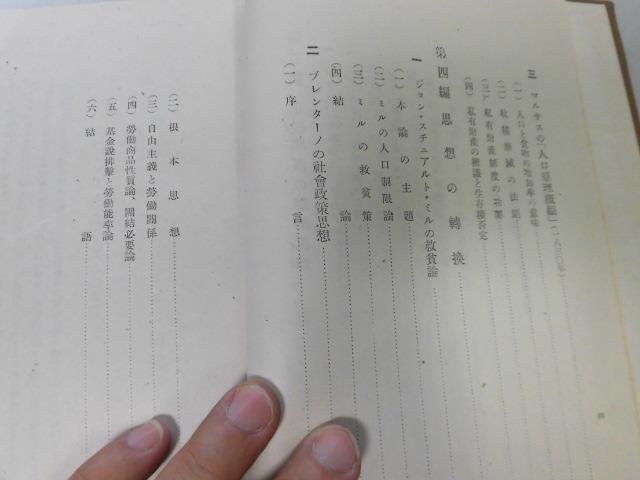 三 マルサスの「人口原理概論」(一八三〇年)
(一) 人口と食物の増加率の意味
(二) 收穫漸減の法則
(三) 私有財產制度の功果
(四) 私有財產の擁護と生存權否定
第四編 思想の轉換
一 ジョン・スチュアルト・ミルの救貧論
(一) 本論の主題
(二) ミルの人口制限論
(三) ミルの救貧策
(四) 結論
二 ブレンターノの社會政策思想
(一) 序言
(二) 根本思想
(三) 自由主義と勞働關係
(四) 勞働商品性質論、團結必要論
(五) 基金說排擊と勞働能率論
(六) 結語